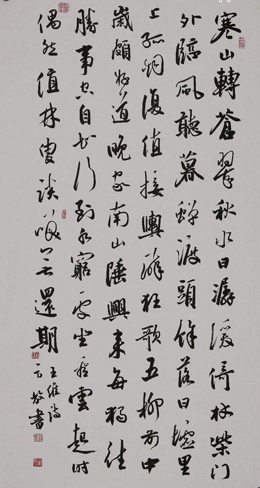 寒山轉蒼翠秋水日潺湲倚杖柴門
外臨風聽暮蟬渡頭餘落日墟里
上孤烟復值接輿醉狂歌五柳前中
歲頗好道晚家南山陲興來每獨往
勝事空自知行到水窮處坐看雲起時
偶然值林叟談笑無還期
王維詩
書